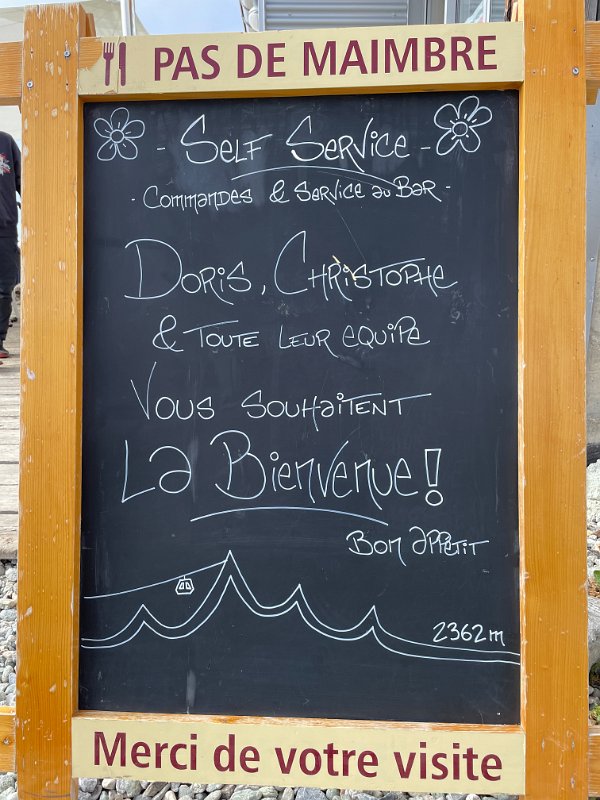 PAS DE MAIMBRE
- Self Service -
- Commandes & Service au Bar -
Doris, Christophe
& toute leur equipe
Vous souhaitent
La Bienvenue!
Bon appetit
2362m
Merci de votre visite